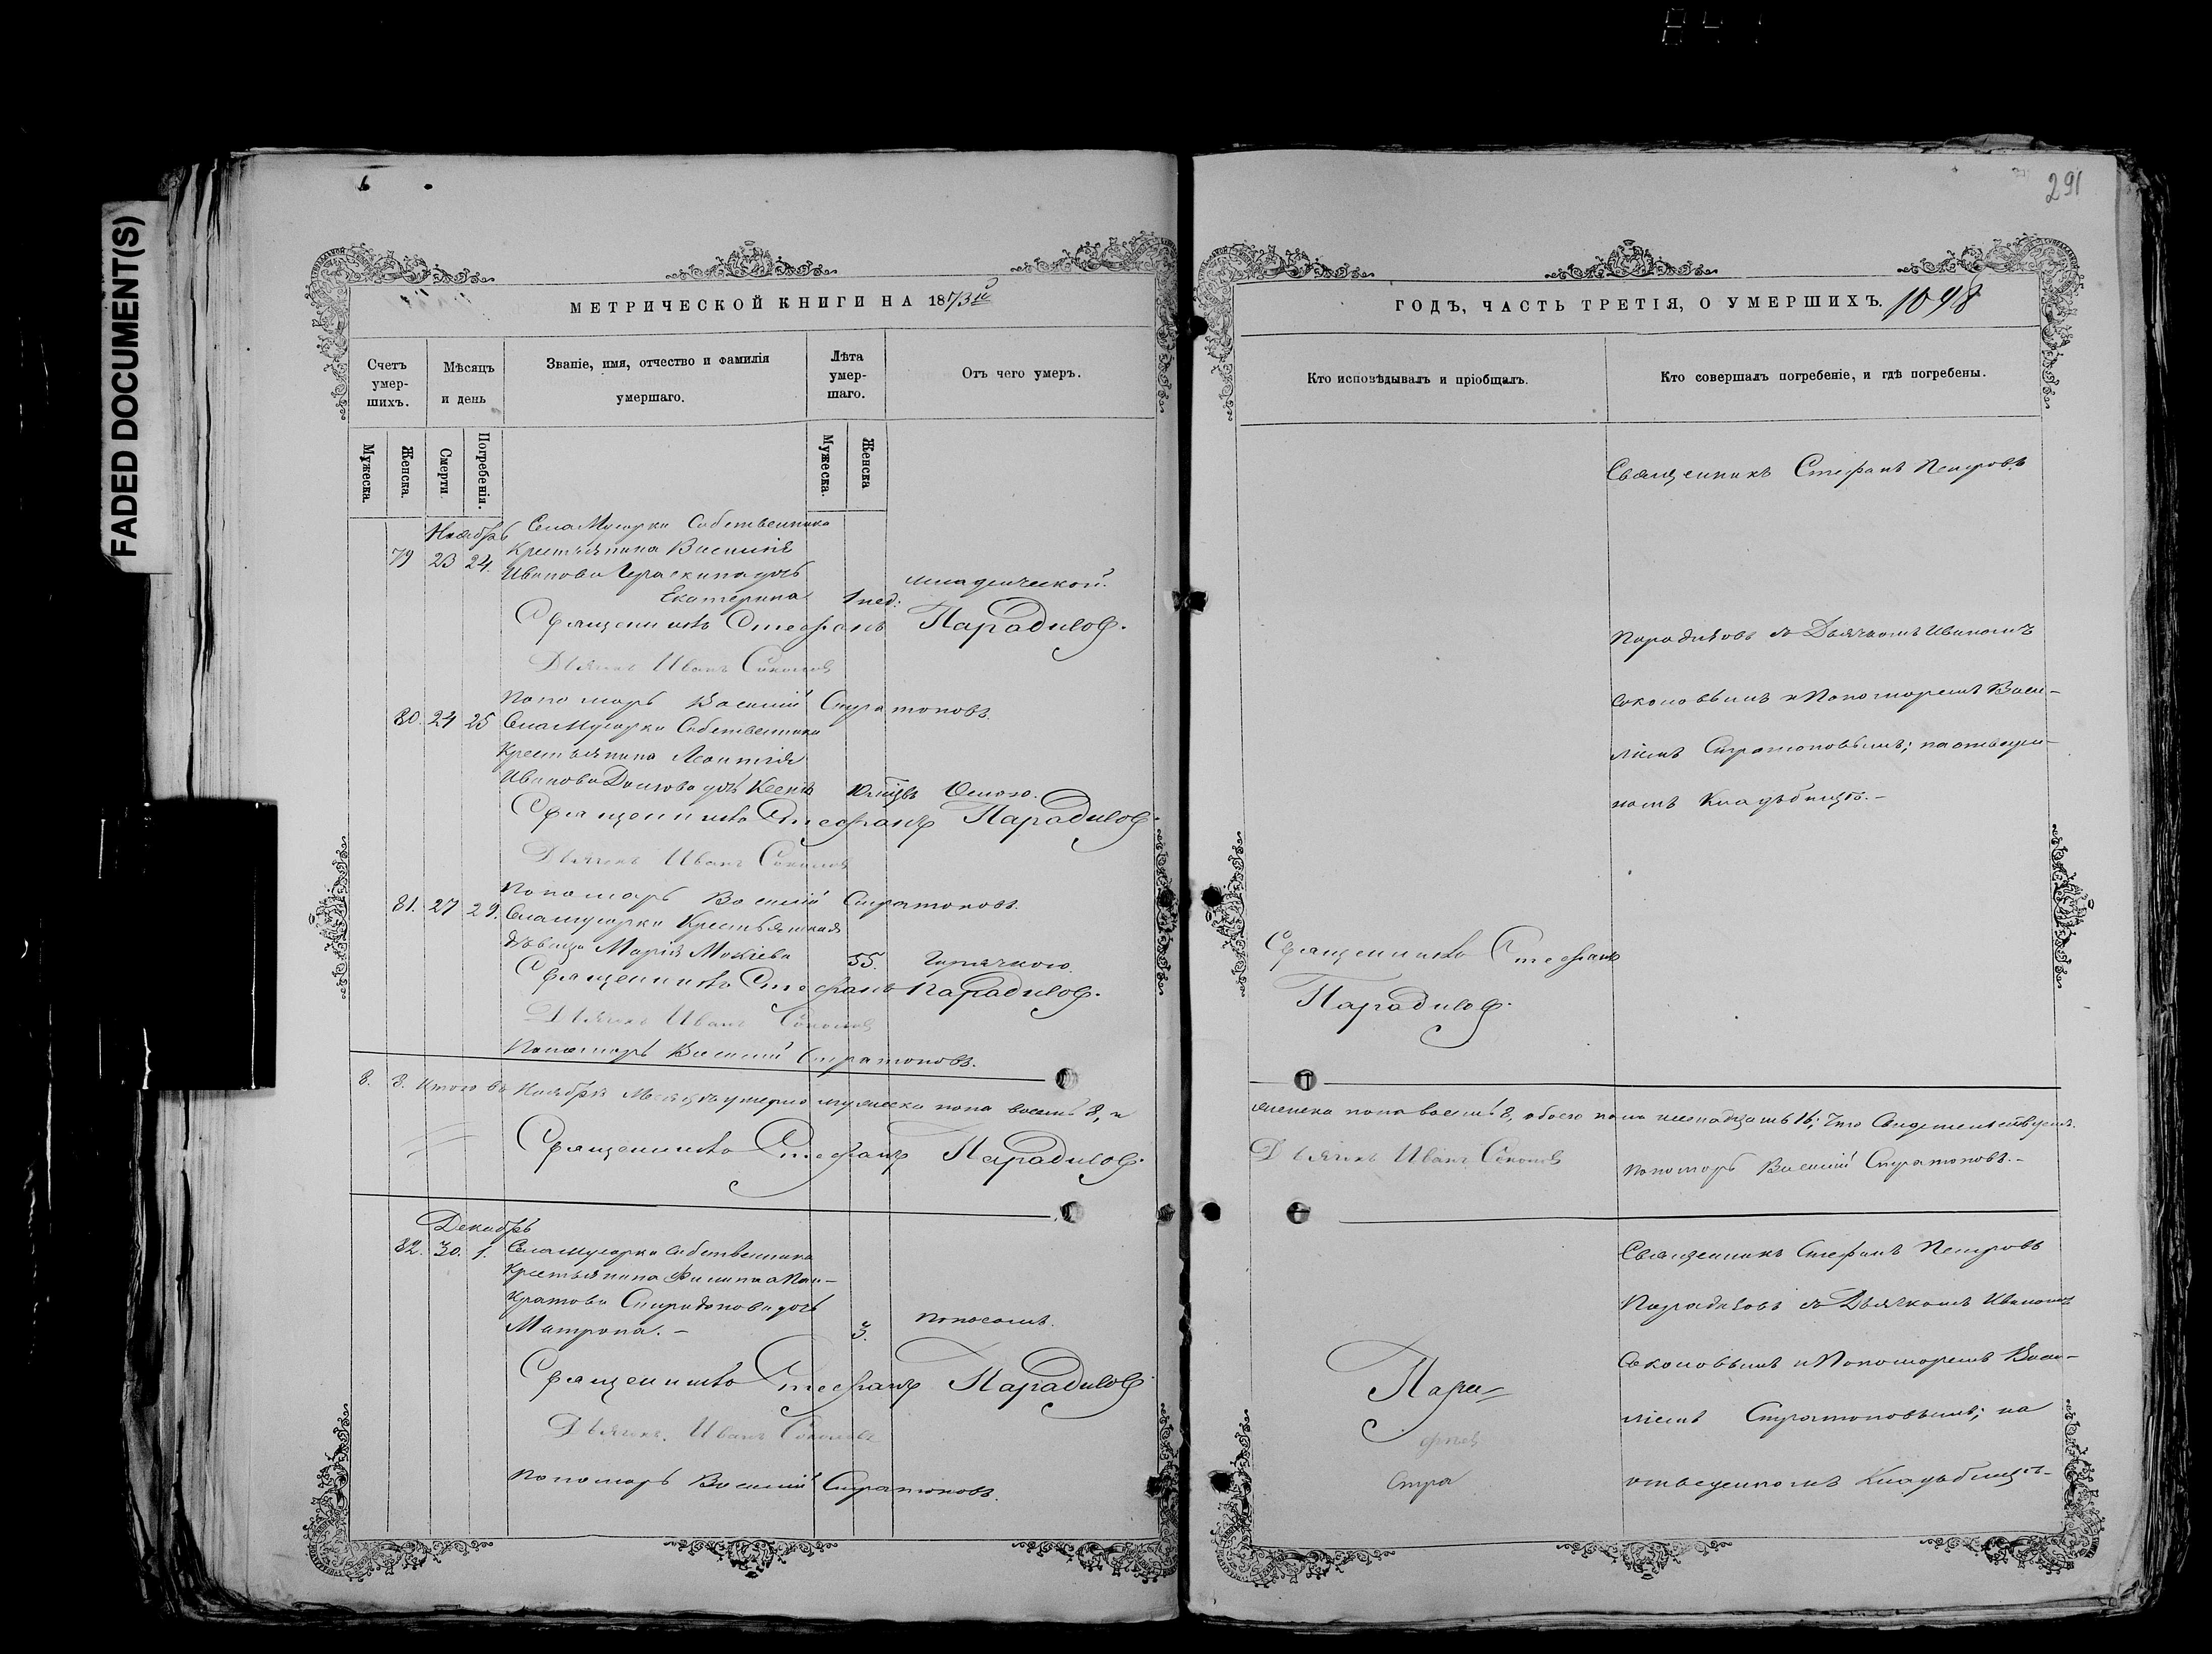 FADED DOCUMENT(S)
291
МЕТРИЧЕСКОЙ КНИГИ НА 1873й
Счетъ умер-шихъ.
Мѣсяцъ и день
Званіе, имя, отчество и фамилія умершаго.
Лѣта умер-шаго.
Отъ чего умеръ.
Мужеска.
Женска.
Смерти
Погребенія.
Мужеска.
Женска
Ноябрь
Села Мусорки Собственника
79 23 24. Крестьянина Василія
Иванова Гераскина дочь
Екатерина 1 нед: младенческой.
Священникъ Стефанъ Парадизов.
Дьячекъ Иванъ Соколов
Пономарь Василий Стратоновъ.
80. 24 25 Села Мусорки Собственника
Крестьянина Леонтія
Иванова дочь Ксенія Оспою.
Священникъ Стефанъ Парадизов.
Дьячекъ Иванъ Соколов
Пономарь Василій Стратоновъ.
81. 27 29. Села Мусорки Крестьянская
дѣвица Марія Мокіева 55. Горячкою.
Священникъ Стефанъ Парадизов.
Дьячекъ Иванъ Соколов
Пономарь Василий Стратоновъ.
8. 8. Итого въ Ноябрѣ Месяцѣ умерло мужеска пола восемь 8, и
Священникъ Стефанъ Парадизов.
Декабрь
82. 30. 1. Села Мусорки Собственника
Крестьянина Филипа Пан-
кратова Спиридонова дочь
Матрона. – 3. поносомъ.
Священникъ Стефанъ Парадизов.
Дьячекъ Иванъ Соколовъ
Пономарь Василий Стратоновъ.
ГОДЪ, ЧАСТЬ ТРЕТІЯ, О УМЕРШИХЪ. 1098
Кто исповѣдывалъ и пріобщалъ.
Кто совершалъ погребеніе, и гдѣ погребены.
Священникъ Стефанъ Петровъ
Парадизовъ съ Дьячкомъ Иваномъ
Соколовымъ и Пономаремъ Васи-
ліемъ Стратоновымъ; на отведен-
номъ Кладбищѣ. –
Священникъ Стефанъ
Парадизов.
женска пола восемь 8, обоего пола шестнадцать 16; Что Свидетельствуемъ.
Дьячекъ Иванъ Соколовъ
Пономарь Василий Стратоновъ. –
Священникъ Стефанъ Петровъ
Парадизовъ съ Дьячкомъ Иваномъ
Соколовымъ и Пономаремъ Васи-
ліемъ Стратоновымъ; на
отведенномъ Кладбищѣ –
Пара
Стра